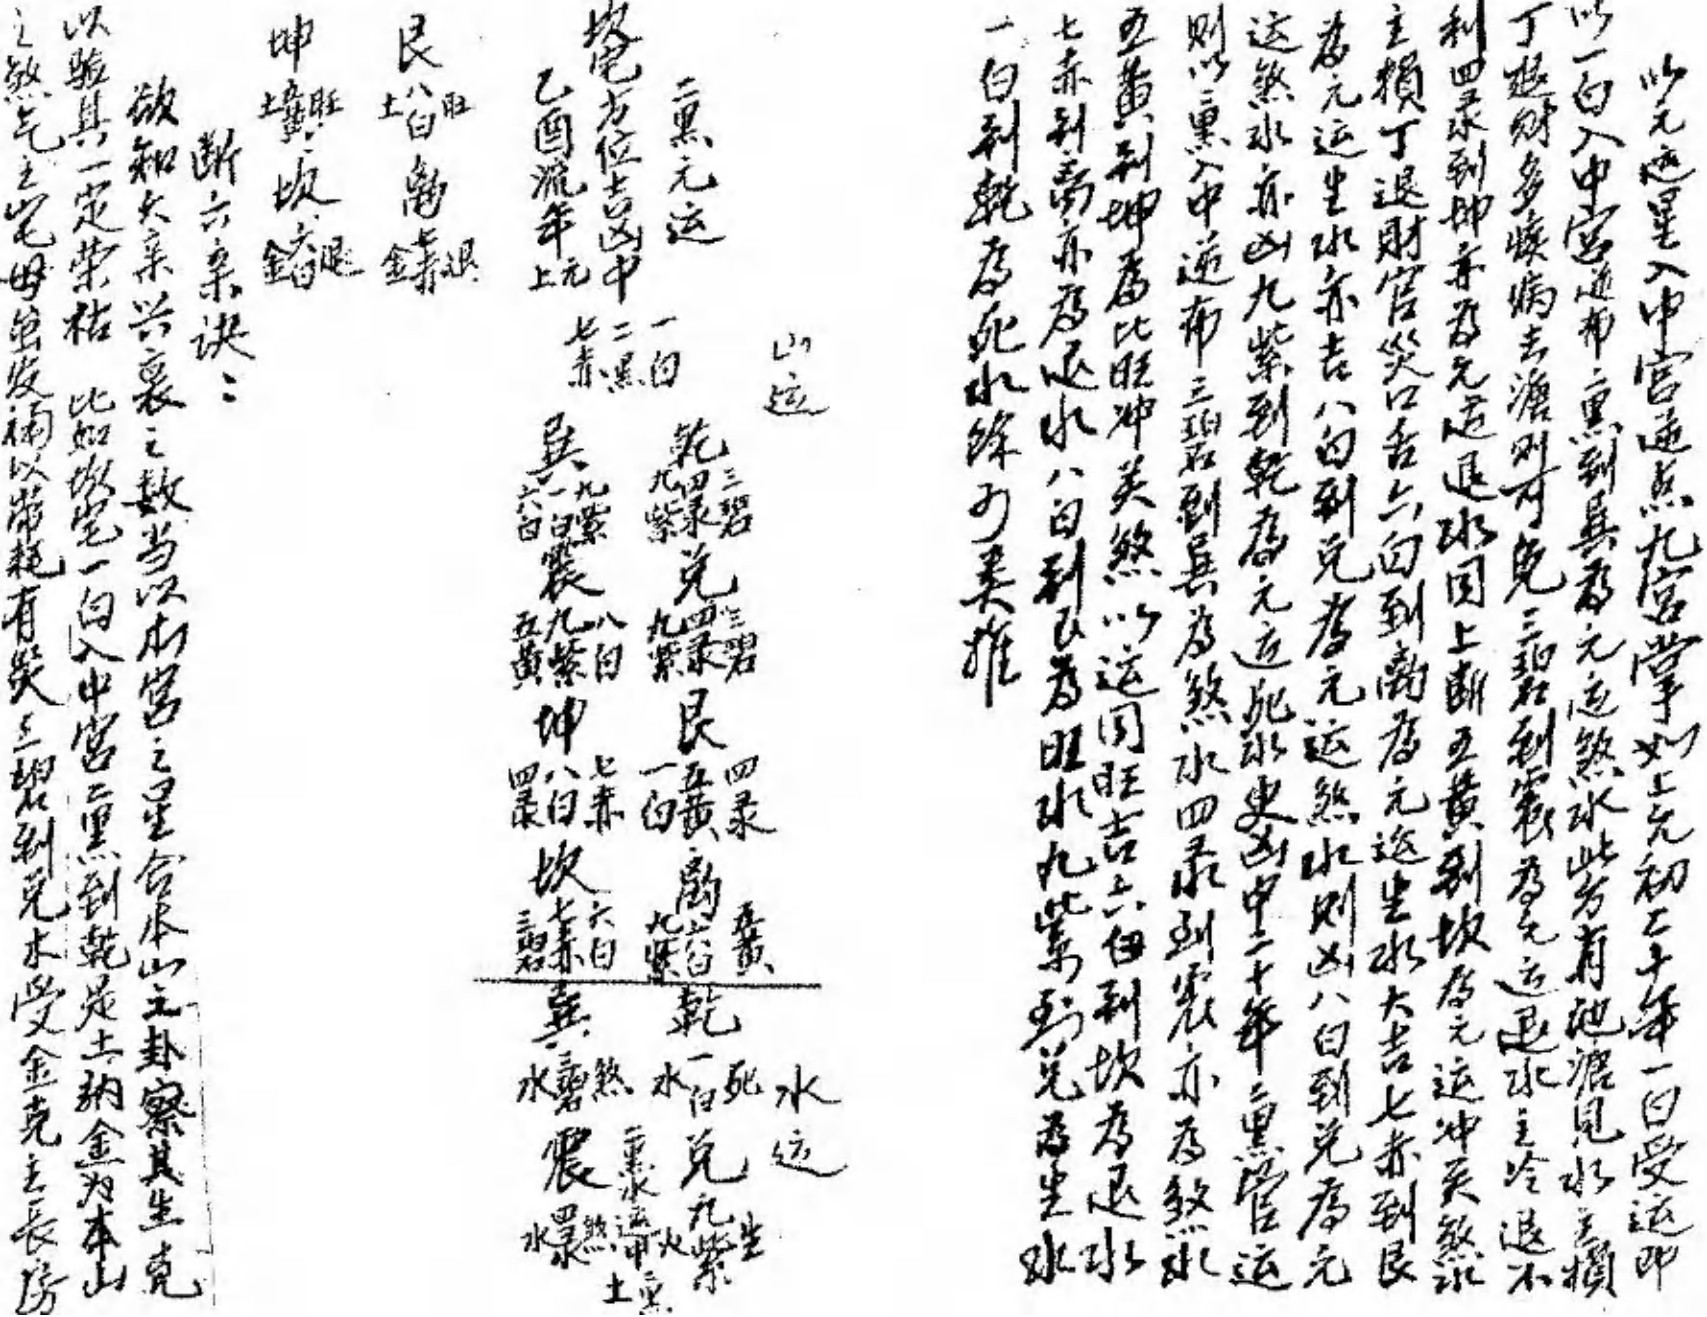 以元运星入中宫逆点九宫掌如上元初二十年一白受运即
以一白入中宫逆布二黑到巽為元运煞水此方有池濇見水主損
丁退财多疾病去濇则可免三碧到震為元运退水主冷退不
利四录到坤亦為元运退水同上断五黄到坎為元运冲关煞水
主損丁退財官災口舌六白到离為元运生水大吉七赤到艮
為元运生水亦吉八白到兑為元运煞水则凶八白到兑為元
运煞水亦凶九紫到乾為元运死水更凶中二十年二黑管运
则以二黑入中逆布三碧到巽為煞水四录到震亦為煞水
五黄到坤為比旺冲关煞以运同旺吉六白到坎為退水
七赤到离亦為退水八白到艮為旺水九紫到兑為生水
一白到乾為死水餘可类推
山运
二黑元运
坎宅方位吉凶中
乙酉流年上元
一白
二黑
七赤
乾 三碧 四录 九紫
兑 三碧 四录 九紫
艮 四录 五黄 一白
离 五黄 六白 九紫
巽 九紫 一白 六白
震 八白 九紫 五黄
坤 七赤 八白 四录
坎 六白 七赤 三碧
水运
乾 死 一白 水
兑 生 九紫 火
二黑水运甲
二黑土
巽 煞 三碧 水
震 煞 四录 水
艮 旺 八白 土
离 退 七赤 金
坤 旺 五黄 土
坎 退 六白 金
断六亲诀：
欲知六亲兴衰之数当以本宫之星合本山之卦察其生克
以验其一定荣枯 比如坎宅一白入中宫二黑到乾是土纳金为本山
之煞气主宅母虽发福以常耗有哭三碧到兑木受金克主长房